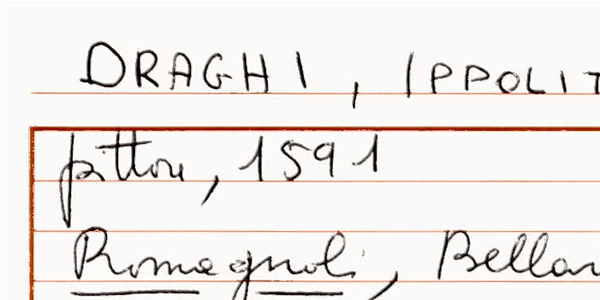 DRAGHI, IPPOLIT
pittore, 1591
Romagnoli, Bellar